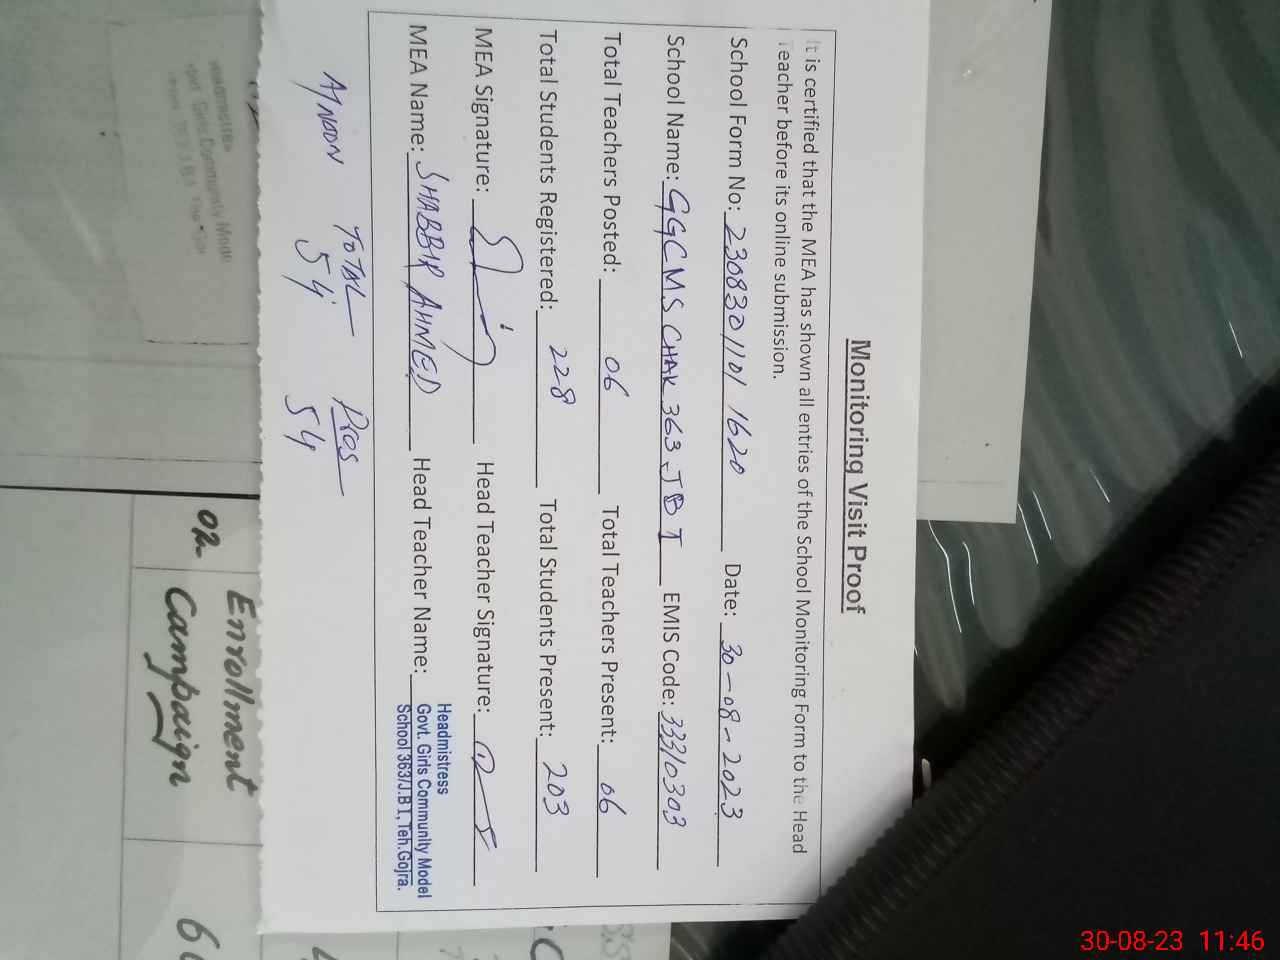 Monitoring Visit Proof
It is certified that the MEA has shown all entries of the School Monitoring Form to the Head
Teacher before its online submission.
School Form No: 230830 1101 1620 Date: 30-08-2023
School Name: GGCMS CHAK 363 JB I EMIS Code: 33310303
Total Teachers Posted: 06 Total Teachers Present: 06
Total Students Registered: 228 Total Students Present: 203
MEA Signature: Head Teacher Signature:
MEA Name: SHABBIR AHMED Head Teacher Name:
Headmistress
Govt. Girls Community Model
School 363/J.B I, Teh.Gojra.
TOTAL Pres
54 54
Enrollment
02 Campaign
30-08-23 11:46